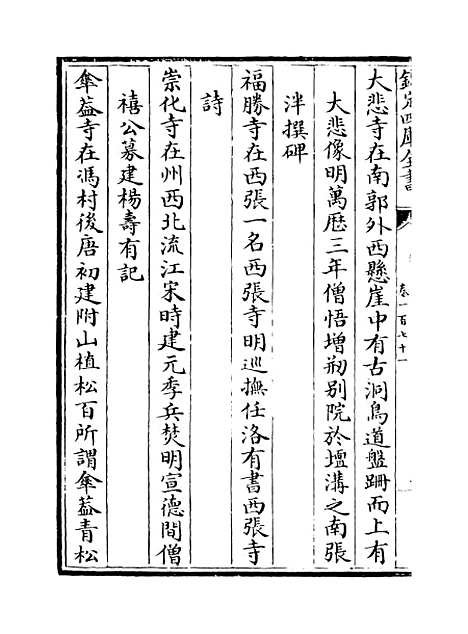 欽定四庫全書
卷一百七十一
大悲寺在南郭外西懸崖中有古洞鳥道盤跚而上有
大悲像明萬歷三年僧悟增剏别院於壇溝之南張
泮撰碑
福勝寺在西張一名西張寺明巡撫任洛有書西張寺
詩
崇化寺在州西北流江宋時建元季兵焚明宣德間僧
禧公募建楊壽有記
傘葢寺在馮村後唐初建附山植松百所謂傘葢青松